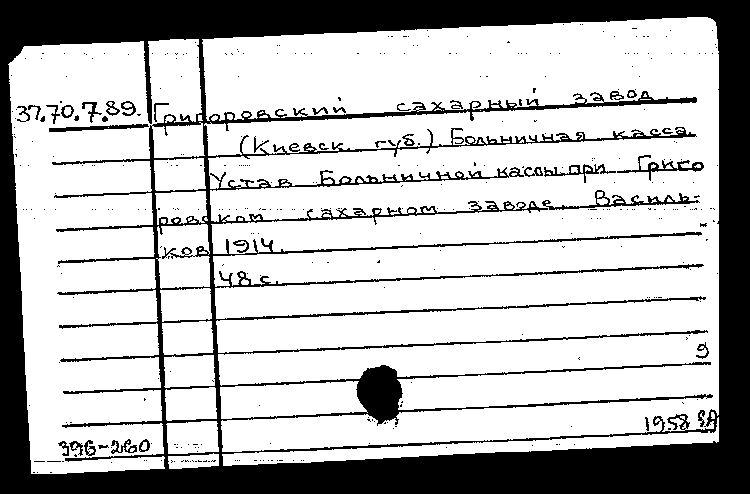 37.70.7.89. Григоровский сахарный завод.
(Киевск. губ.). Больничная касса.
Устав Больничной кассы при Григо
ровском сахарном заводе. Василь-
ков, 1914.
48 с.
9
396-260 1958